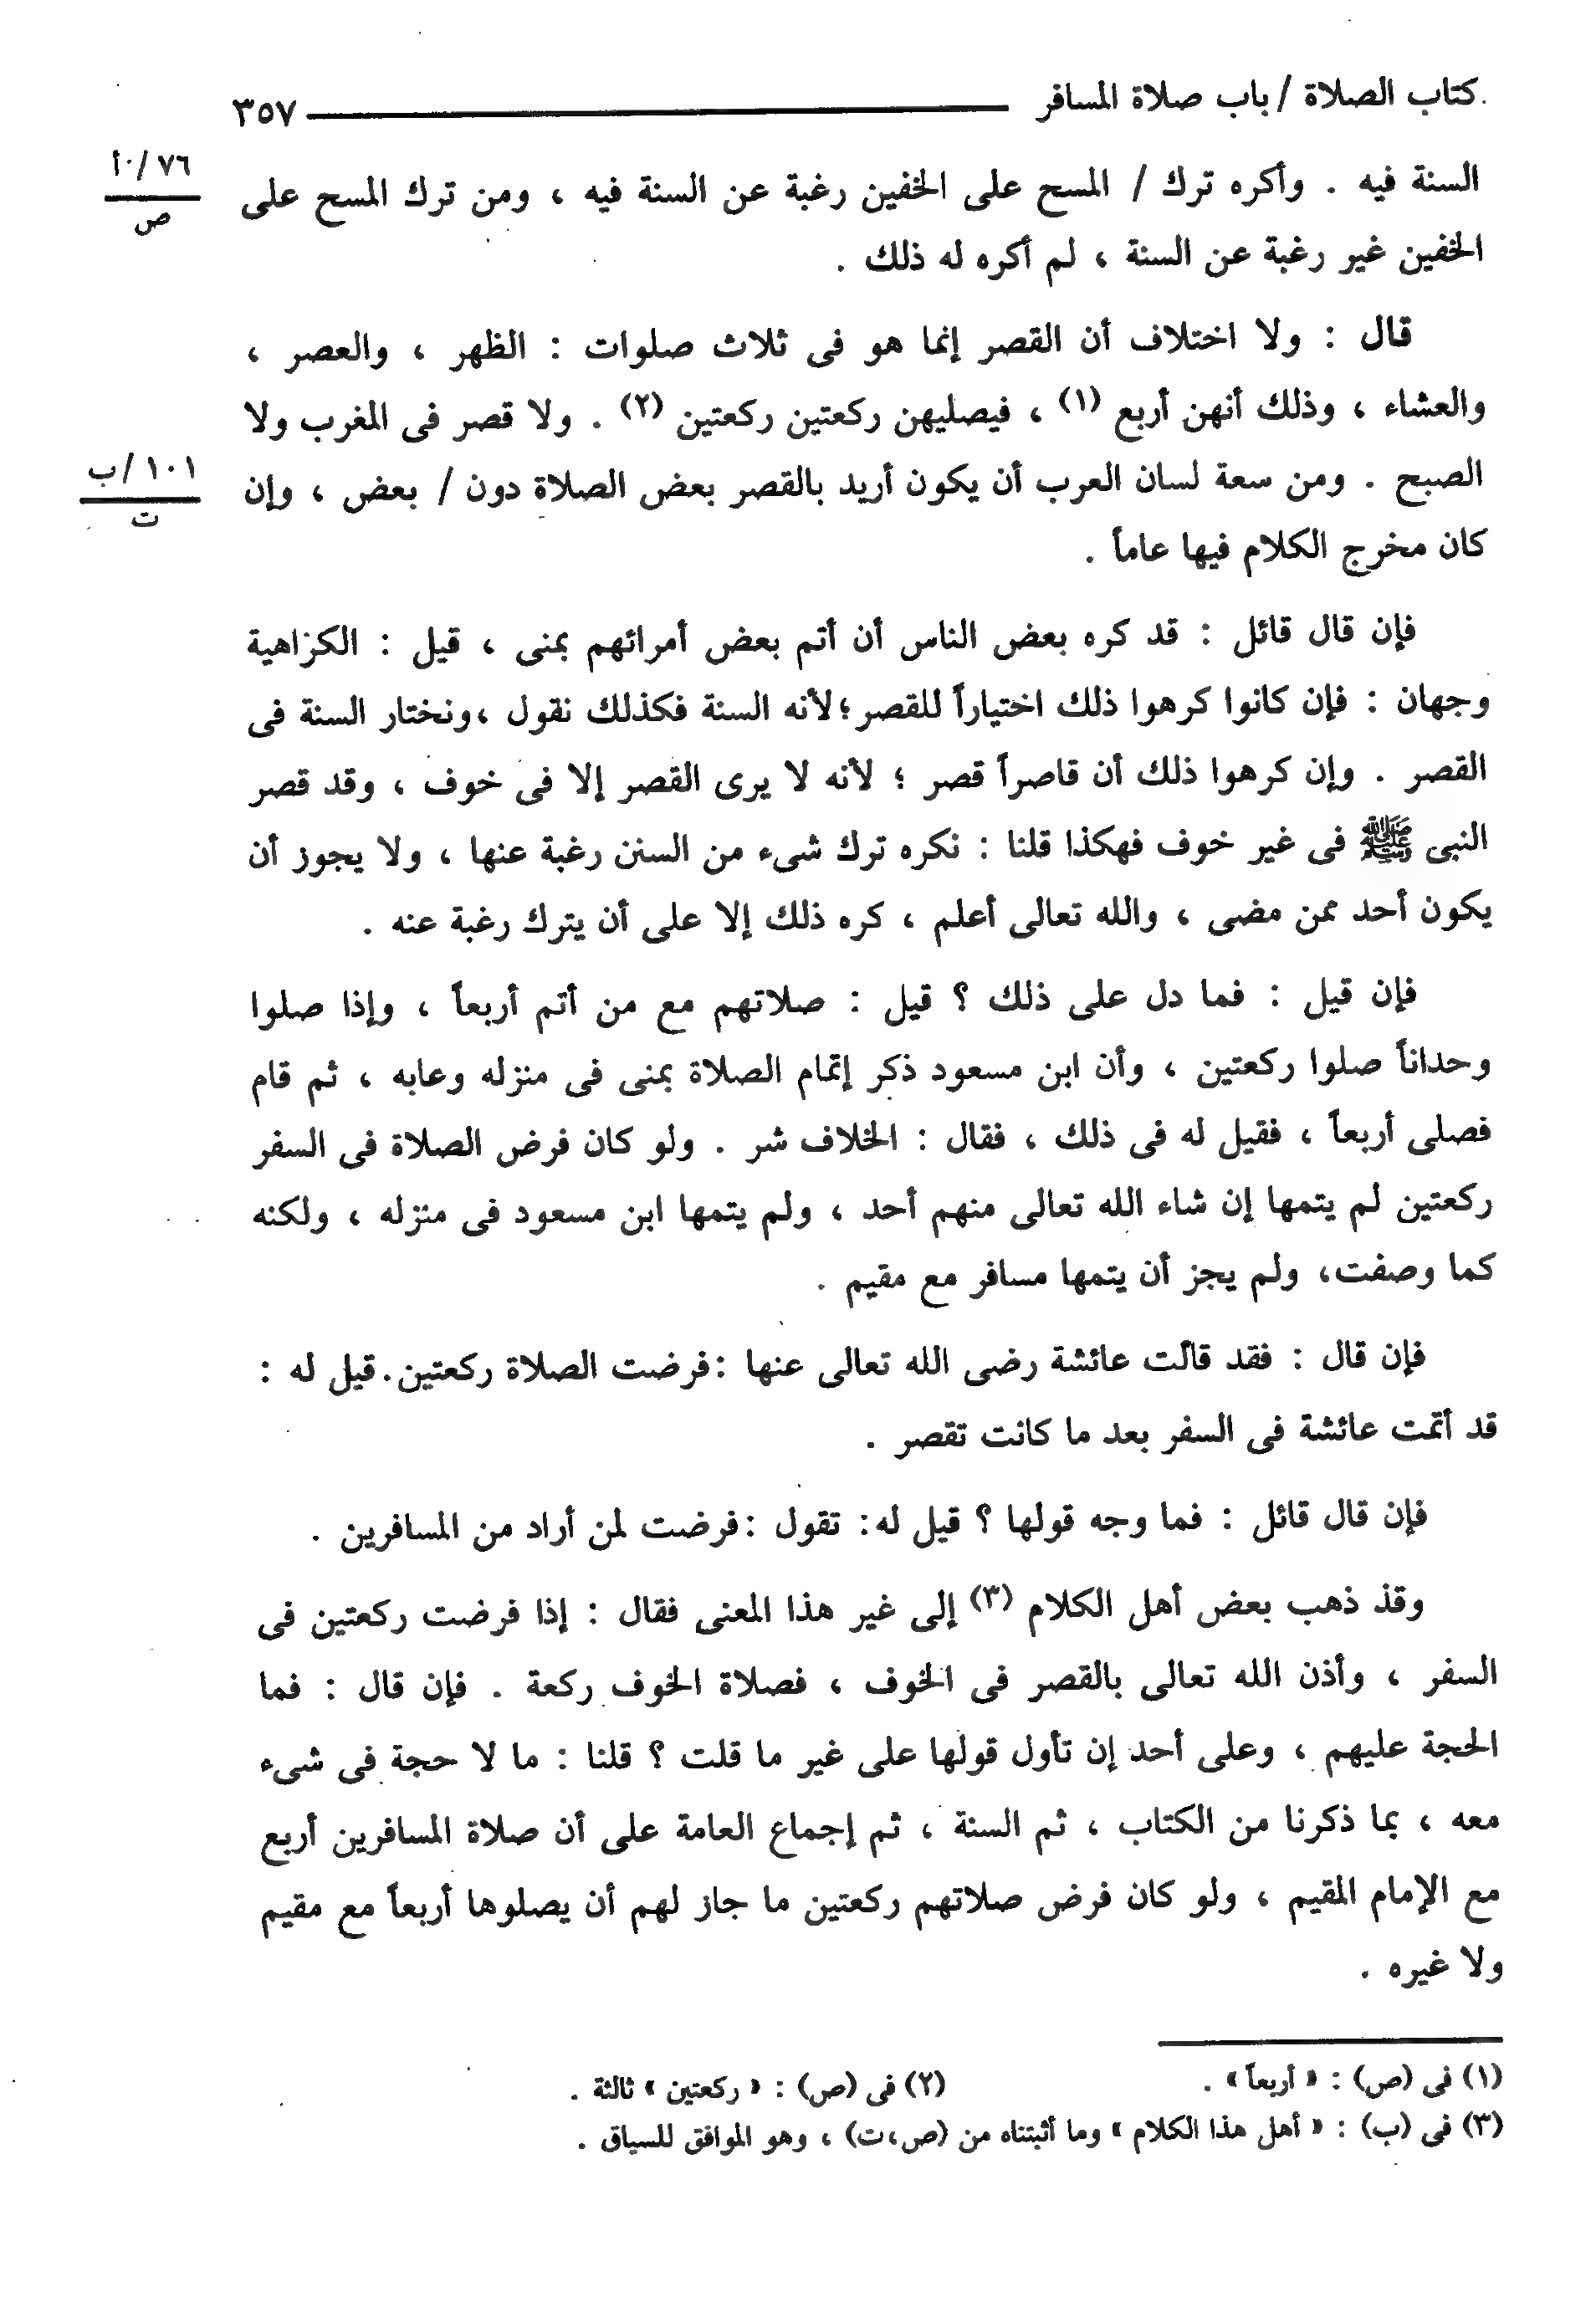 كتاب الصلاة / باب صلاة المسافر ٣٥٧
السنة فيه . وأكره ترك / المسح على الخفين رغبة عن السنة فيه ، ومن ترك المسح على
٧٦ /أ
ص
الخفين غير رغبة عن السنة ، لم أكره له ذلك .
قال : ولا اختلاف أن القصر إنما هو فى ثلاث صلوات : الظهر ، والعصر ،
والعشاء ، وذلك أنهن أربع (١) ، فيصليهن ركعتين ركعتين (٢) . ولا قصر فى المغرب ولا
الصبح . ومن سعة لسان العرب أن يكون أريد بالقصر بعض الصلاة دون / بعض ، وإن
١٠١ /ب
ت
كان مخرج الكلام فيها عاماً .
فإن قال قائل : قد كره بعض الناس أن أتم بعض أمرائهم بمنى ، قيل : الكراهية
وجهان : فإن كانوا كرهوا ذلك اختياراً للقصر؛ لأنه السنة فكذلك نقول ، ونختار السنة فى
القصر . وإن كرهوا ذلك أن قاصراً قصر ؛ لأنه لا يرى القصر إلا فى خوف ، وقد قصر
النبى ﷺ فى غير خوف فهكذا قلنا : نكره ترك شىء من السنن رغبة عنها ، ولا يجوز أن
يكون أحد ممن مضى ، والله تعالى أعلم ، كره ذلك إلا على أن يترك رغبة عنه .
فإن قيل : فما دل على ذلك ؟ قيل : صلاتهم مع من أتم أربعاً ، وإذا صلوا
وحداناً صلوا ركعتين ، وأن ابن مسعود ذكر إتمام الصلاة بمنى فى منزله وعابه ، ثم قام
فصلى أربعاً ، فقيل له فى ذلك ، فقال : الخلاف شر . ولو كان فرض الصلاة فى السفر
ركعتين لم يتمها إن شاء الله تعالى منهم أحد ، ولم يتمها ابن مسعود فى منزله ، ولكنه
كما وصفت، ولم يجز أن يتمها مسافر مع مقيم .
فإن قال : فقد قالت عائشة رضى الله تعالى عنها :فرضت الصلاة ركعتين. قيل له :
قد أتمت عائشة فى السفر بعد ما كانت تقصر .
فإن قال قائل : فما وجه قولها ؟ قيل له: تقول :فرضت لمن أراد من المسافرين .
وقد ذهب بعض أهل الكلام (٣) إلى غير هذا المعنى فقال : إذا فرضت ركعتين فى
السفر ، وأذن الله تعالى بالقصر فى الخوف ، فصلاة الخوف ركعة . فإن قال : فما
الحجة عليهم ، وعلى أحد إن تأول قولها على غير ما قلت ؟ قلنا : ما لا حجة فى شىء
معه ، بما ذكرنا من الكتاب ، ثم السنة ، ثم إجماع العامة على أن صلاة المسافرين أربع
مع الإمام المقيم ، ولو كان فرض صلاتهم ركعتين ما جاز لهم أن يصلوها أربعاً مع مقيم
ولا غيره .
(١) فى (ص) : « أربعاً » . (٢) فى (ص) : « ركعتين » ثالثة .
(٣) فى (ب) : « أهل هذا الكلام » وما أثبتناه من (ص،ت) ، وهو الموافق للسياق .